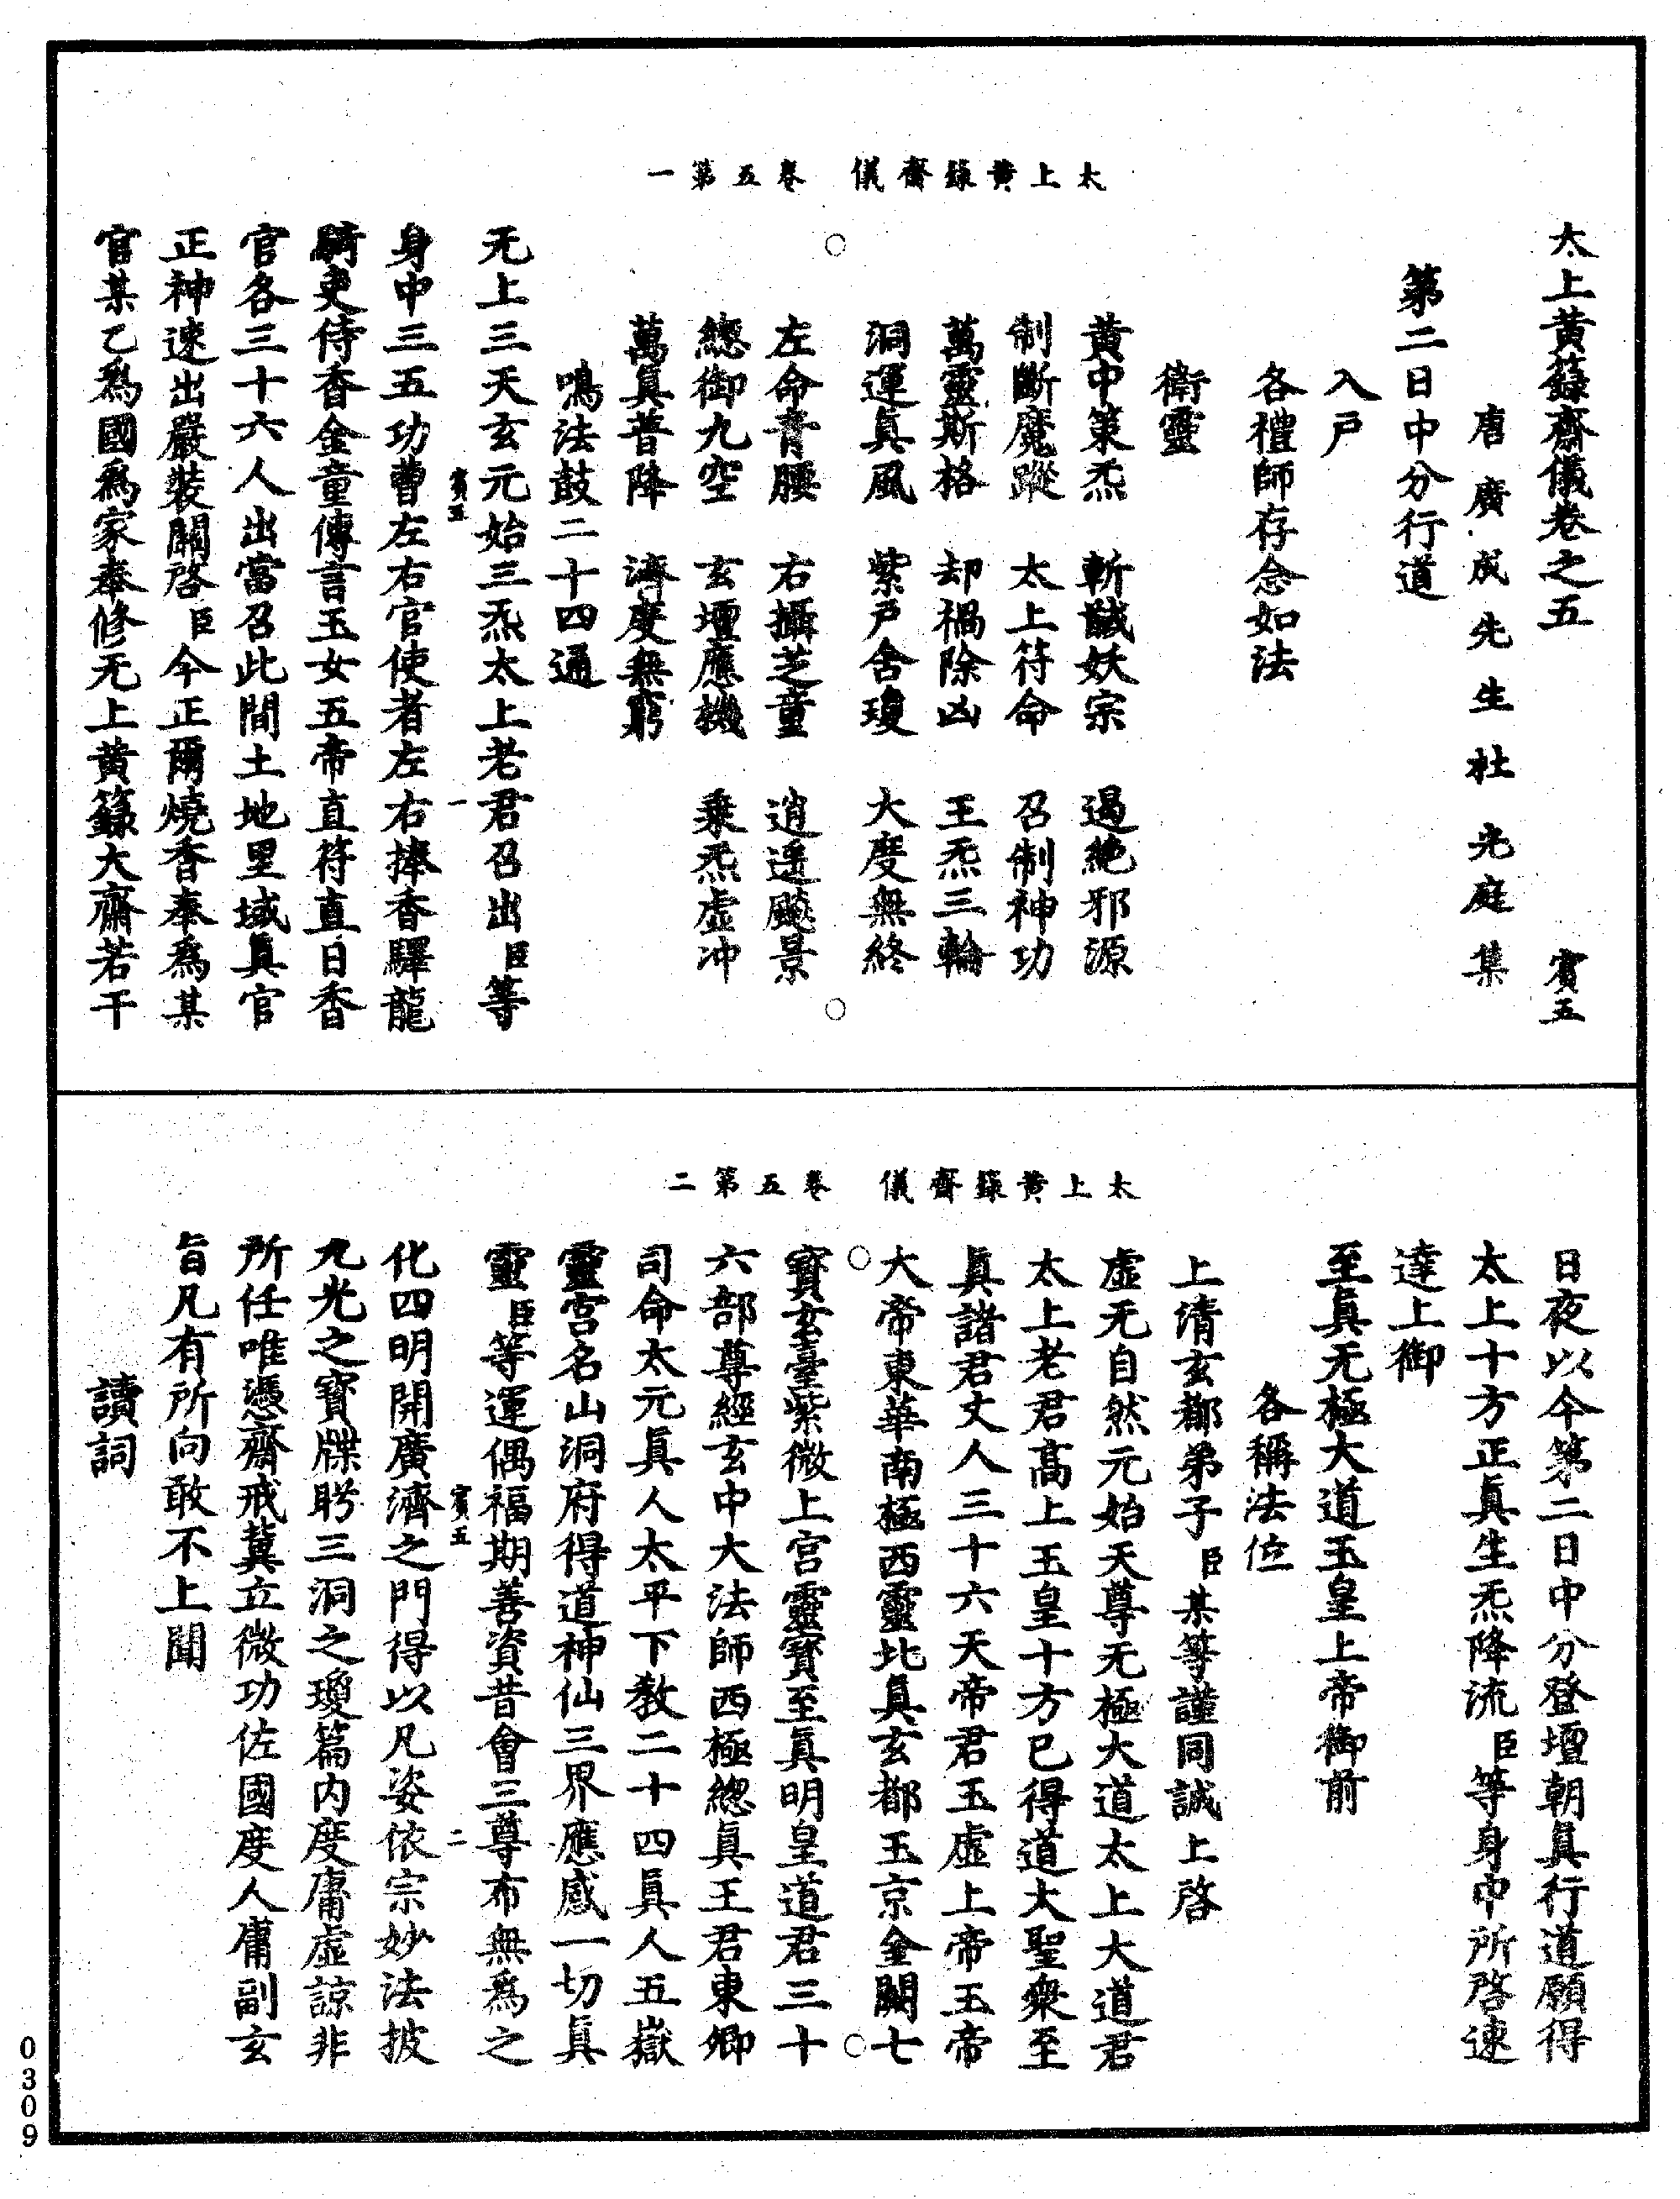 太上黃籙齋儀　卷五第一
太上黃籙齋儀卷之五　賓五
唐廣成先生杜光庭集
第二日中分行道
入戶
各禮師存念如法
衛靈
黃中策炁　斬馘妖宗　遏絶邪源
制斷魔蹤　太上符命　召制神功
萬靈斯格　却禍除凶　王炁三輪
洞運眞風　紫戶舍瓊　大度無終
左命青腰　右攝芝童　逍遥飈景
總御九空　玄壇應機　乗炁虛冲
萬眞普降　濟度無窮
鳴法鼓二十四通
无上三天玄元始三炁太上老君召出臣等
賓五　一
身中三五功曹左右官使者左右捧香驛龍
騎吏侍香金童傳言玉女五帝直符直日香
官各三十六人出當召此間土地里域眞官
正神速出嚴裝關啓臣今正爾燒香奉爲某
官某乙爲國爲家奉修无上黃籙大齋若干
太上黃籙齋儀　卷五第二
日夜以今第二日中分登壇朝眞行道願得
太上十方正眞生炁降流臣等身中所啓速
達上御
至眞无極大道玉皇上帝御前
各稱法位
上清玄都弟子臣某等謹同誠上啓
虛无自然元始天尊无極大道太上大道君
太上老君高上玉皇十方已得道大聖衆至
眞諸君丈人三十六天帝君玉虛上帝玉帝
大帝東華南極西靈北眞玄都玉京金闕七
寳玄臺紫微上宮靈寳至眞明皇道君三十
六部尊經玄中大法師西極總眞王君東卿
司命太元眞人太平下敎二十四眞人五嶽
靈宮名山洞府得道神仙三界應感一切眞
靈臣等運偶福期善資昔會三尊布無爲之
賓五　二
化四明開廣濟之門得以凡姿依宗妙法披
九光之寳牒聆三洞之瓊篇内度庸虛諒非
所任唯憑齋戒冀立微功佐國度人庸副玄
旨凡有所向敢不上聞
讀詞
0309